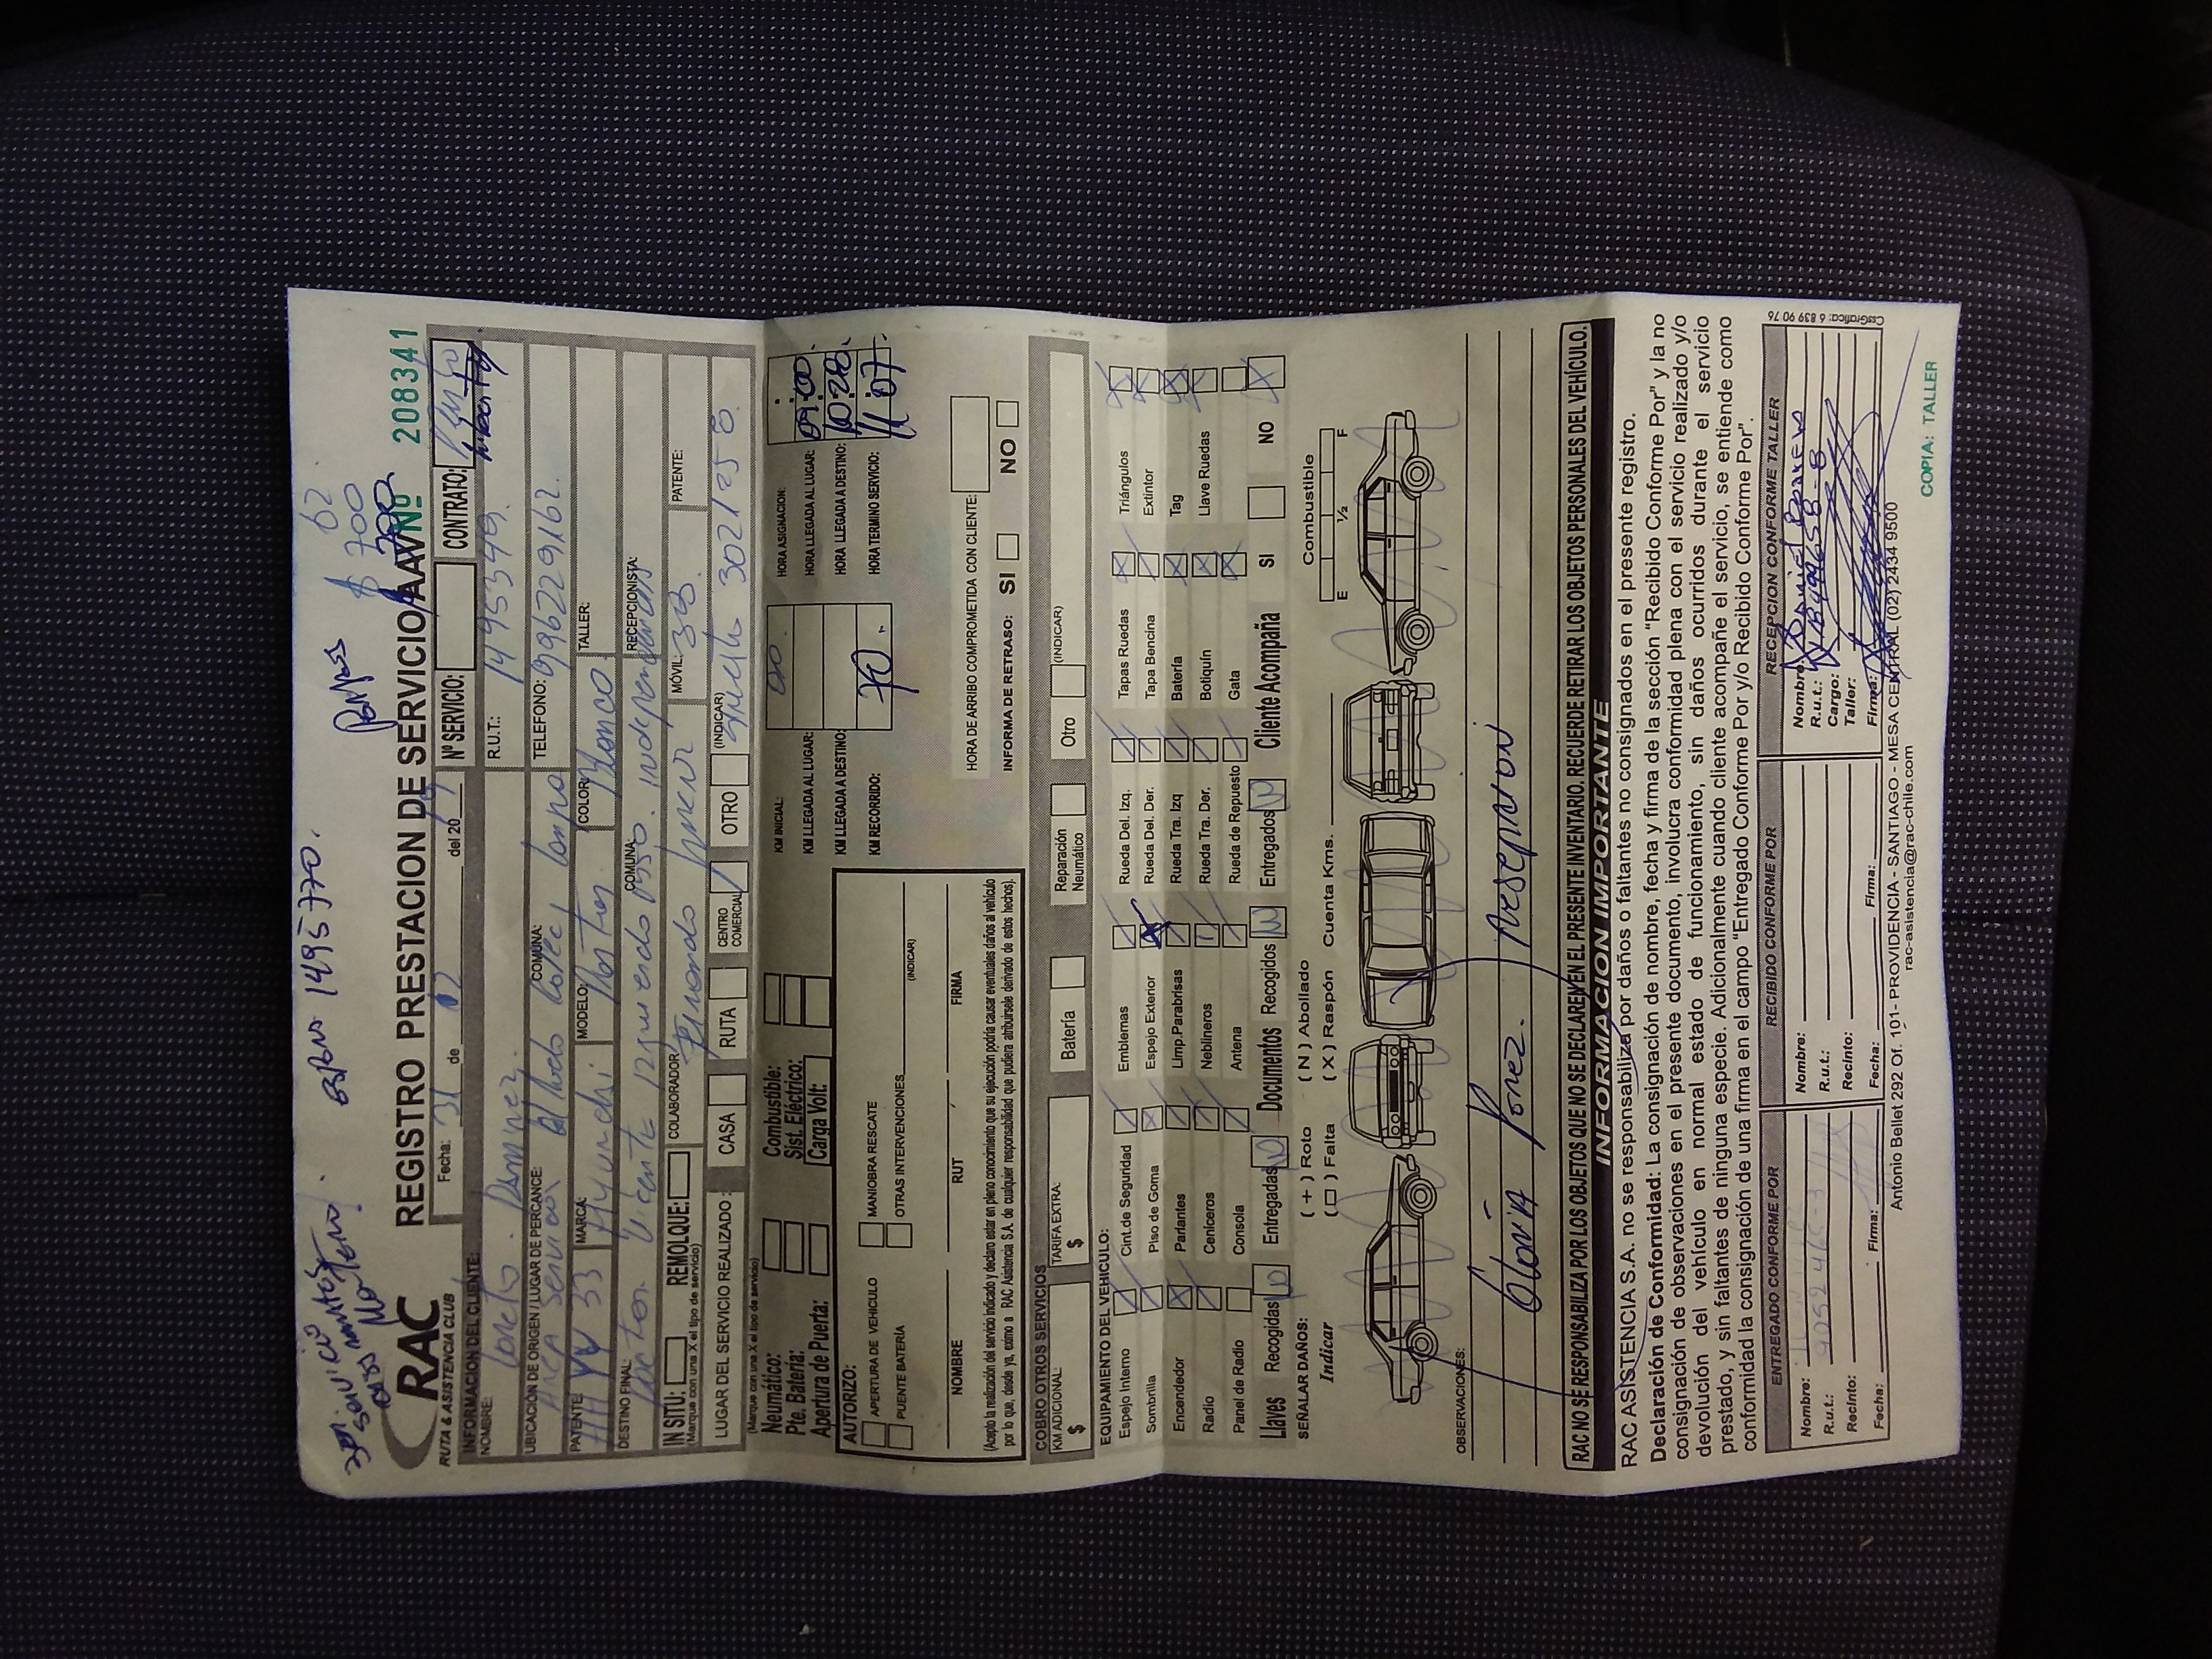 62
$ 700
Expdn 1495770.
RAC
RUTA & ASISTENCIA CLUB
REGISTRO PRESTACION DE SERVICIO
Nº 208341
Fecha: 31 de 02 del 20
Nº SERVICIO:
CONTRATO:
INFORMACION DEL CLIENTE:
NOMBRE: Loreto Ramirez.
R.U.T.:
UBICACIÓN DE ORIGEN / LUGAR DE PERCANCE:
COMUNA:
TELEFONO: 996229162.
PATENTE:
MARCA: Hyundai
MODELO:
COLOR: Blanco
TALLER:
DESTINO FINAL: Vicente Izquierdo
COMUNA: Independencia
RECEPCIONISTA:
IN SITU:
REMOLQUE:
(Marque con una X el tipo de servicio)
COLABORADOR:
MÓVIL: 38.
PATENTE:
LUGAR DEL SERVICIO REALIZADO :
CASA
RUTA
CENTRO COMERCIAL
OTRO
(INDICAR)
(Marque con una X el tipo de servicio)
Neumático:
Combustible:
Pte. Batería:
Sist. Eléctrico:
Apertura de Puerta:
Carga Volt:
KM INICIAL:
HORA ASIGNACION:
KM LLEGADA AL LUGAR:
HORA LLEGADA AL LUGAR: 09:00
KM LLEGADA A DESTINO:
HORA LLEGADA A DESTINO: 10:28
KM RECORRIDO: 70
HORA TERMINO SERVICIO: 11 07
AUTORIZO:
APERTURA DE VEHICULO
MANIOBRA RESCATE
PUENTE BATERÍA
OTRAS INTERVENCIONES
(INDICAR)
NOMBRE
RUT
FIRMA
(Acepto la realización del servicio indicado y declaro estar en pleno conocimiento que su ejecución podría causar eventuales daños al vehículo
por lo que, desde ya, eximo a RAC Asistencia S.A. de cualquier responsabilidad que pudiera atribuirsele derivado de estos hechos).
HORA DE ARRIBO COMPROMETIDA CON CLIENTE:
INFORMA DE RETRASO: SI NO
COBRO OTROS SERVICIOS
KM ADICIONAL:
$
TARIFA EXTRA:
$
Batería
Reparación Neumático
Otro
(INDICAR)
EQUIPAMIENTO DEL VEHICULO:
Espejo Interno
Cint.de Seguridad
Emblemas
Rueda Del. Izq.
Tapas Ruedas
Triángulos
Sombrilla
Piso de Goma
Espejo Exterior
Rueda Del. Der.
Tapa Bencina
Extintor
Encendedor
Parlantes
Limp.Parabrisas
Rueda Tra. Izq
Batería
Tag
Radio
Ceniceros
Neblineros
Rueda Tra. Der.
Botiquín
Llave Ruedas
Panel de Radio
Consola
Antena
Rueda de Repuesto
Gata
Llaves Recogidas Entregadas Documentos Recogidos Entregados Cliente Acompaña SI NO
SEÑALAR DAÑOS:
Indicar
( + ) Roto
( N ) Abollado
( □ ) Falta
( X ) Raspón
Cuenta Kms.
Combustible
E ½ F
OBSERVACIONES:
Gloria Perez.
RAC NO SE RESPONSABILIZA POR LOS OBJETOS QUE NO SE DECLAREN EN EL PRESENTE INVENTARIO. RECUERDE RETIRAR LOS OBJETOS PERSONALES DEL VEHÍCULO.
INFORMACION IMPORTANTE
RAC ASISTENCIA S.A. no se responsabiliza por daños o faltantes no consignados en el presente registro.
Declaración de Conformidad: La consignación de nombre, fecha y firma de la sección "Recibido Conforme Por" y la no
consignación de observaciones en el presente documento, involucra conformidad plena con el servicio realizado y/o
devolución del vehículo en normal estado de funcionamiento, sin daños ocurridos durante el servicio
prestado, y sin faltantes de ninguna especie. Adicionalmente cuando cliente acompañe el servicio, se entiende como
conformidad la consignación de una firma en el campo "Entregado Conforme Por y/o Recibido Conforme Por".
ENTREGADO CONFORME POR
RECIBIDO CONFORME POR
RECEPCION CONFORME TALLER
Nombre:
R.u.t.:
Recinto:
Fecha: Firma:
Nombre:
R.u.t.:
Recinto:
Fecha: Firma:
Nombre:
R.u.t.:
Cargo:
Taller:
Firma:
Antonio Bellet 292 Of. 101 - PROVIDENCIA - SANTIAGO - MESA CENTRAL (02) 2434 9500
rac-asistencia@rac-chile.com
COPIA: TALLER
CssGrafica: 6 839 90 76